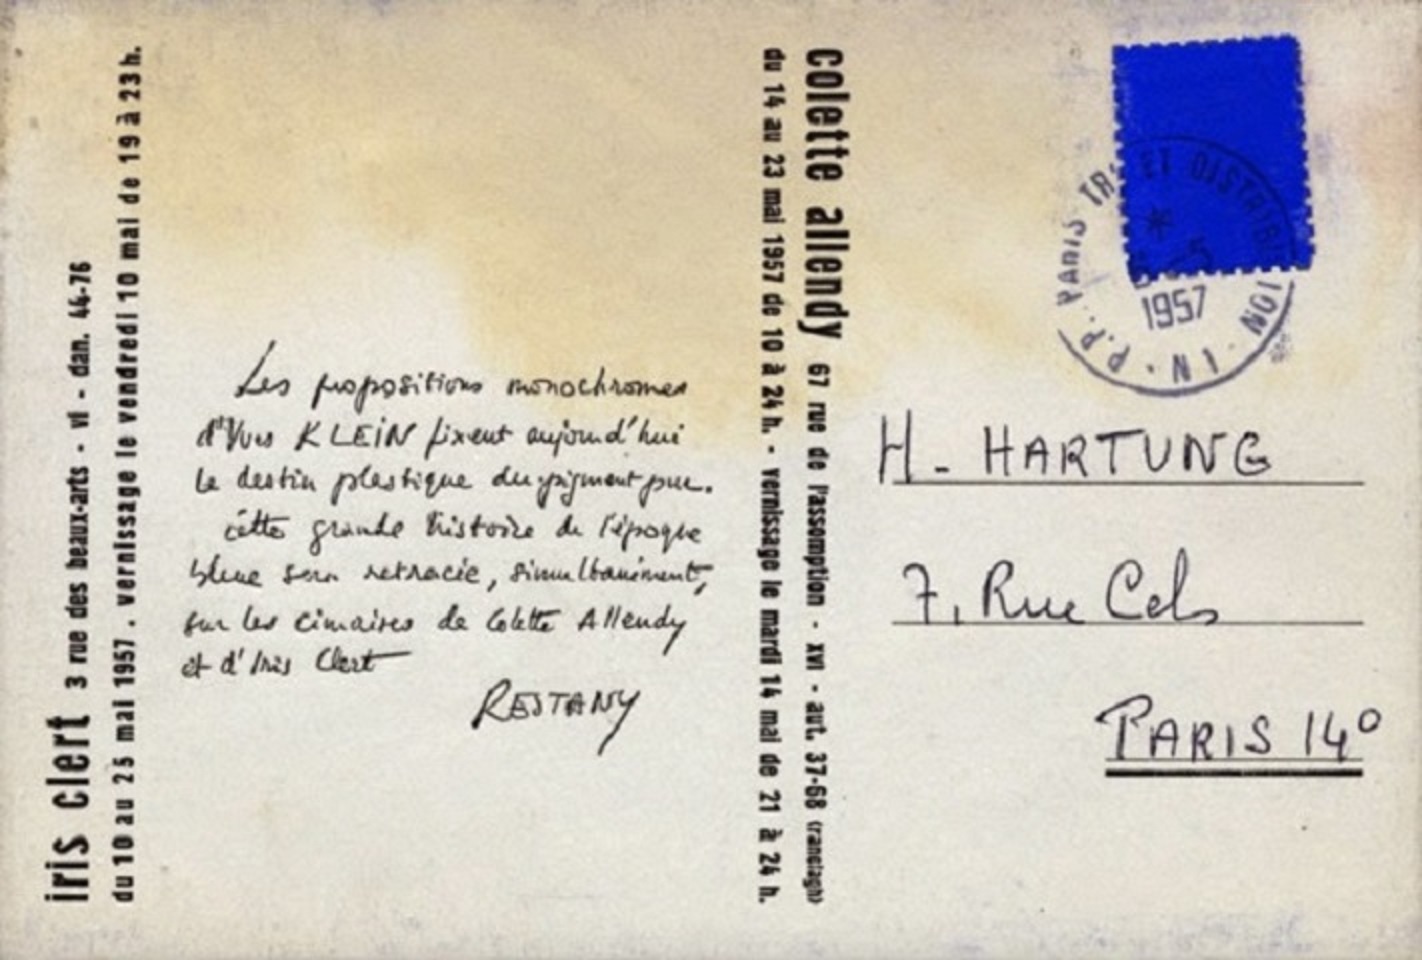 iris clert 3 rue des beaux-arts - vi - dan. 44-76
du 10 au 25 mai 1957 . vernissage le vendredi 10 mai de 19 à 23 h.
Les propositions monochromes
d'Yves KLEIN fixent aujourd'hui
le destin plastique du pigment pur.
cette grande histoire de l'époque
bleue sera retracée, simultanément,
sur les cimaises de Colette Allendy
et d'Iris Clert
RESTANY
colette allendy 67 rue de l'assomption - xvi - aut. 37-68 (ranelagh)
du 14 au 23 mai 1957 de 10 à 24 h. - vernissage le mardi 14 mai de 21 à 24 h.
P.P. PARIS TRI ET DISTRIBUTION . IN .
1957
H. HARTUNG
7, Rue Cels
PARIS 14°